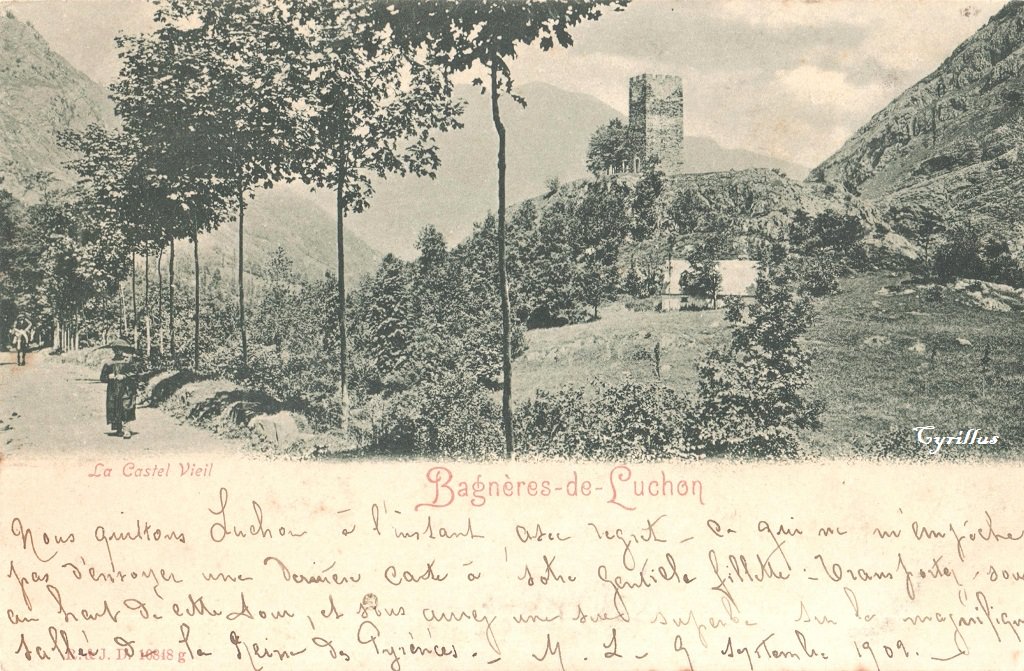 Cyrillus
La Castel Vieil
Bagnères-de-Luchon
Nous quittons Luchon à l'instant, avec regret - ce qui ne m'empêche
pas d'envoyer une dernière carte à votre gentille fillette - Transportez-vous
au haut de cette tour, et vous aurez une vue superbe sur la magnifique
vallée de la Reine des Pyrénées. - M. L. 9 septembre 1902.
J. D. 10318 g